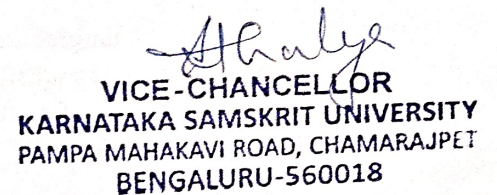 VICE-CHANCELLOR
KARNATAKA SAMSKRIT UNIVERSITY
PAMPA MAHAKAVI ROAD, CHAMARAJPET
BENGALURU-560018